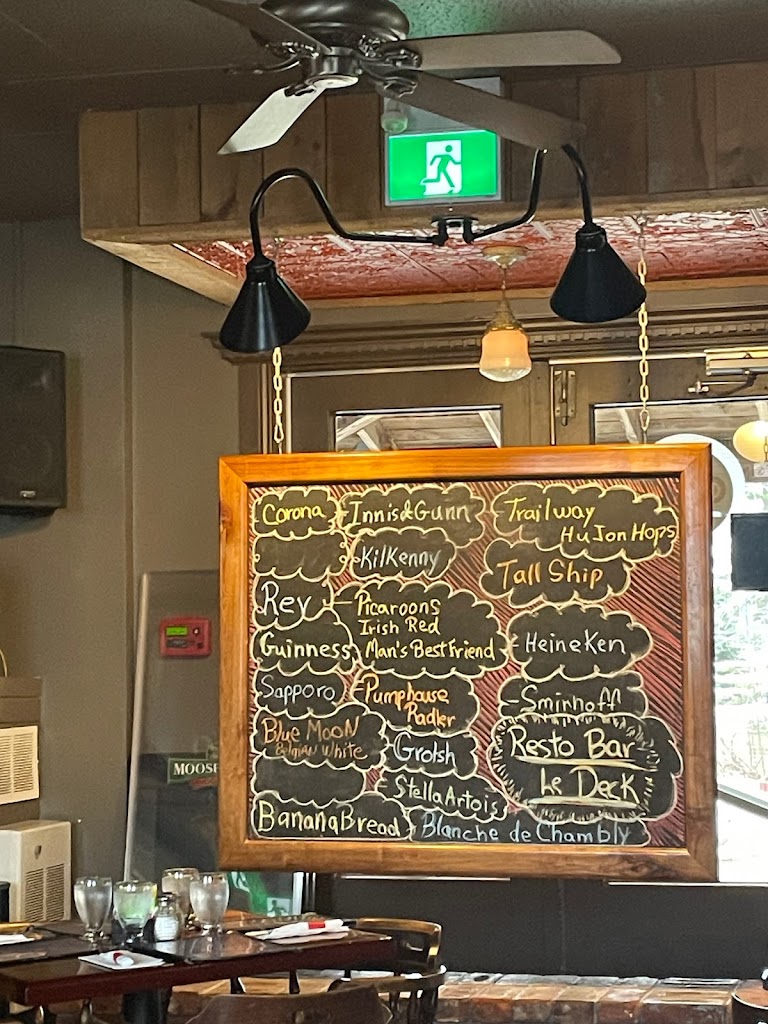 Corona
Innis&Gunn
Trailway
HuJonHops
Kilkenny
Tall Ship
Rev
Picaroons
Irish Red
Man's Best Friend
Guinness
Heineken
Sapporo
Pumphouse
Radler
Smirnoff
Blue Moon
Belgian White
Grolsh
Resto Bar
Le Deck
Stella Artois
Banana Bread
Blanche de Chambly
MOOSE